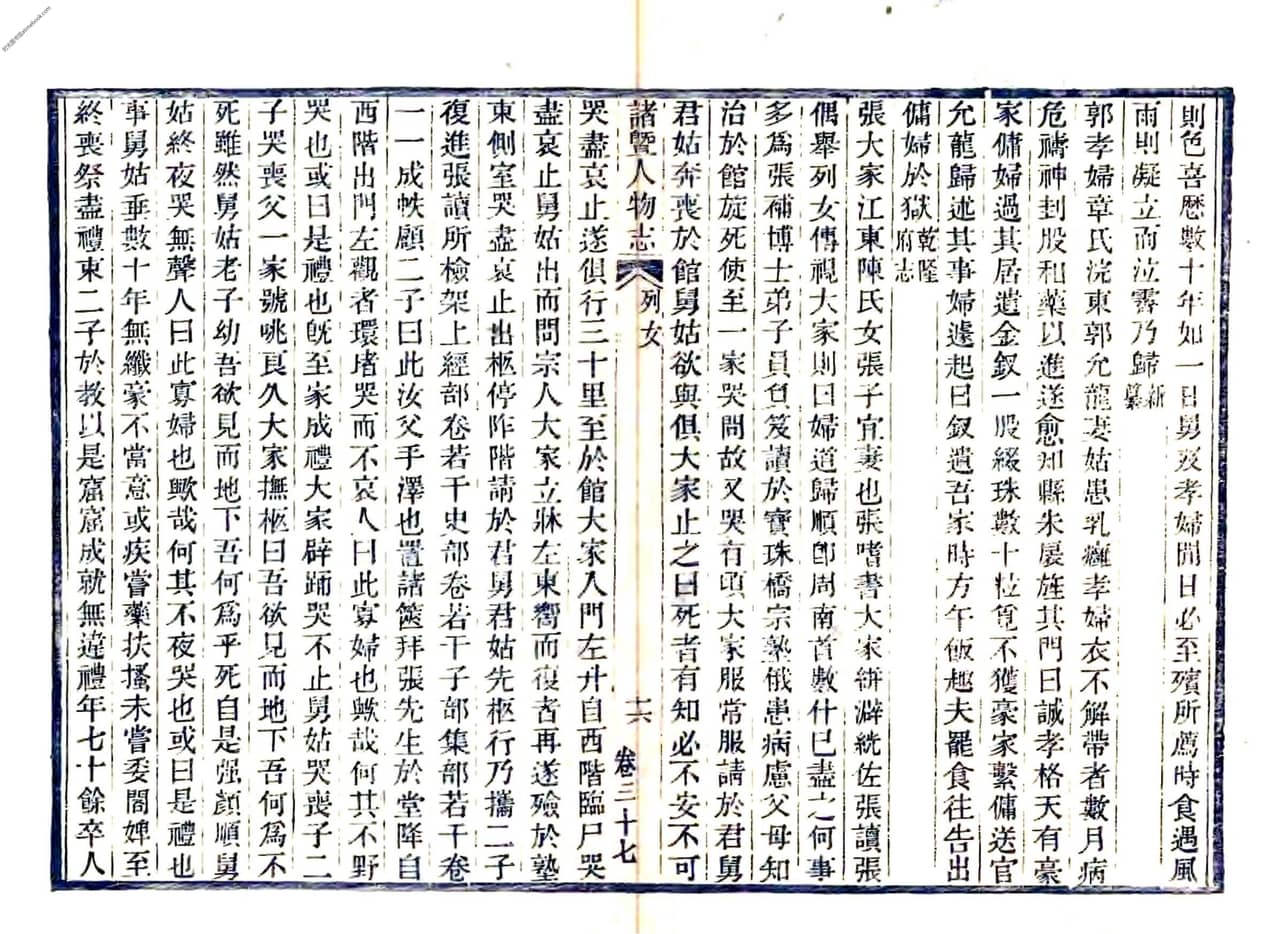 則色喜歷數十年如一日舅歿孝婦間日必至殯所薦時食遇風
雨則凝立而泣霽乃歸新纂
郭孝婦章氏浣東郭允龍妻姑患乳癰孝婦衣不解帶者數月病
危禱神刲股和藥以進遂愈知縣朱扆旌其門曰誠孝格天有豪
家傭婦過其居遺金釵一股綴珠數十粒覓不獲豪家繫傭送官
允龍歸述其事婦遽起曰釵遺吾家時方午飯趣夫罷食往告出
傭婦於獄乾隆府志
張大家江東陳氏女張子宜妻也張嗜書大家絣澼絖佐張讀張
偶舉列女傳視大家則曰婦道歸順卽周南首數什已盡之何事
多爲張補博士弟子員負笈讀於寶珠橋宗塾俄患病慮父母知
治於館旋死使至一家哭問故又哭有頃大家服常服請於君舅
君姑奔喪於館舅姑欲與俱大家止之曰死者有知必不安不可
諸暨人物志 列女 十六 卷三十七
哭盡哀止遂俱行三十里至於館大家入門左升自西階臨尸哭
盡哀止舅姑出而問宗人大家立牀左東嚮而復者再遂殮於塾
東側室哭盡哀止出柩停阼階請於君舅君姑先柩行乃攜二子
復進張讀所檢架上經部卷若干史部卷若干子部集部若干卷
一一成帙顧二子曰此汝父手澤也置諸篋拜張先生於堂降自
西階出門左觀者環堵哭而不哀人曰此寡婦也歟哉何其不野
哭也或曰是禮也旣至家成禮大家辟踊哭不止舅姑哭喪子二
子哭喪父一家號咷良久大家撫柩曰吾欲見而地下吾何爲不
死雖然舅姑老子幼吾欲見而地下吾何爲乎死自是强顏順舅
姑終夜哭無聲人曰此寡婦也歟哉何其不夜哭也或曰是禮也
事舅姑垂數十年無纖豪不當意或疾嘗藥扶搔未嘗委閽婢至
終喪祭盡禮東二子於教以是窟窟成就無違禮年七十餘卒人